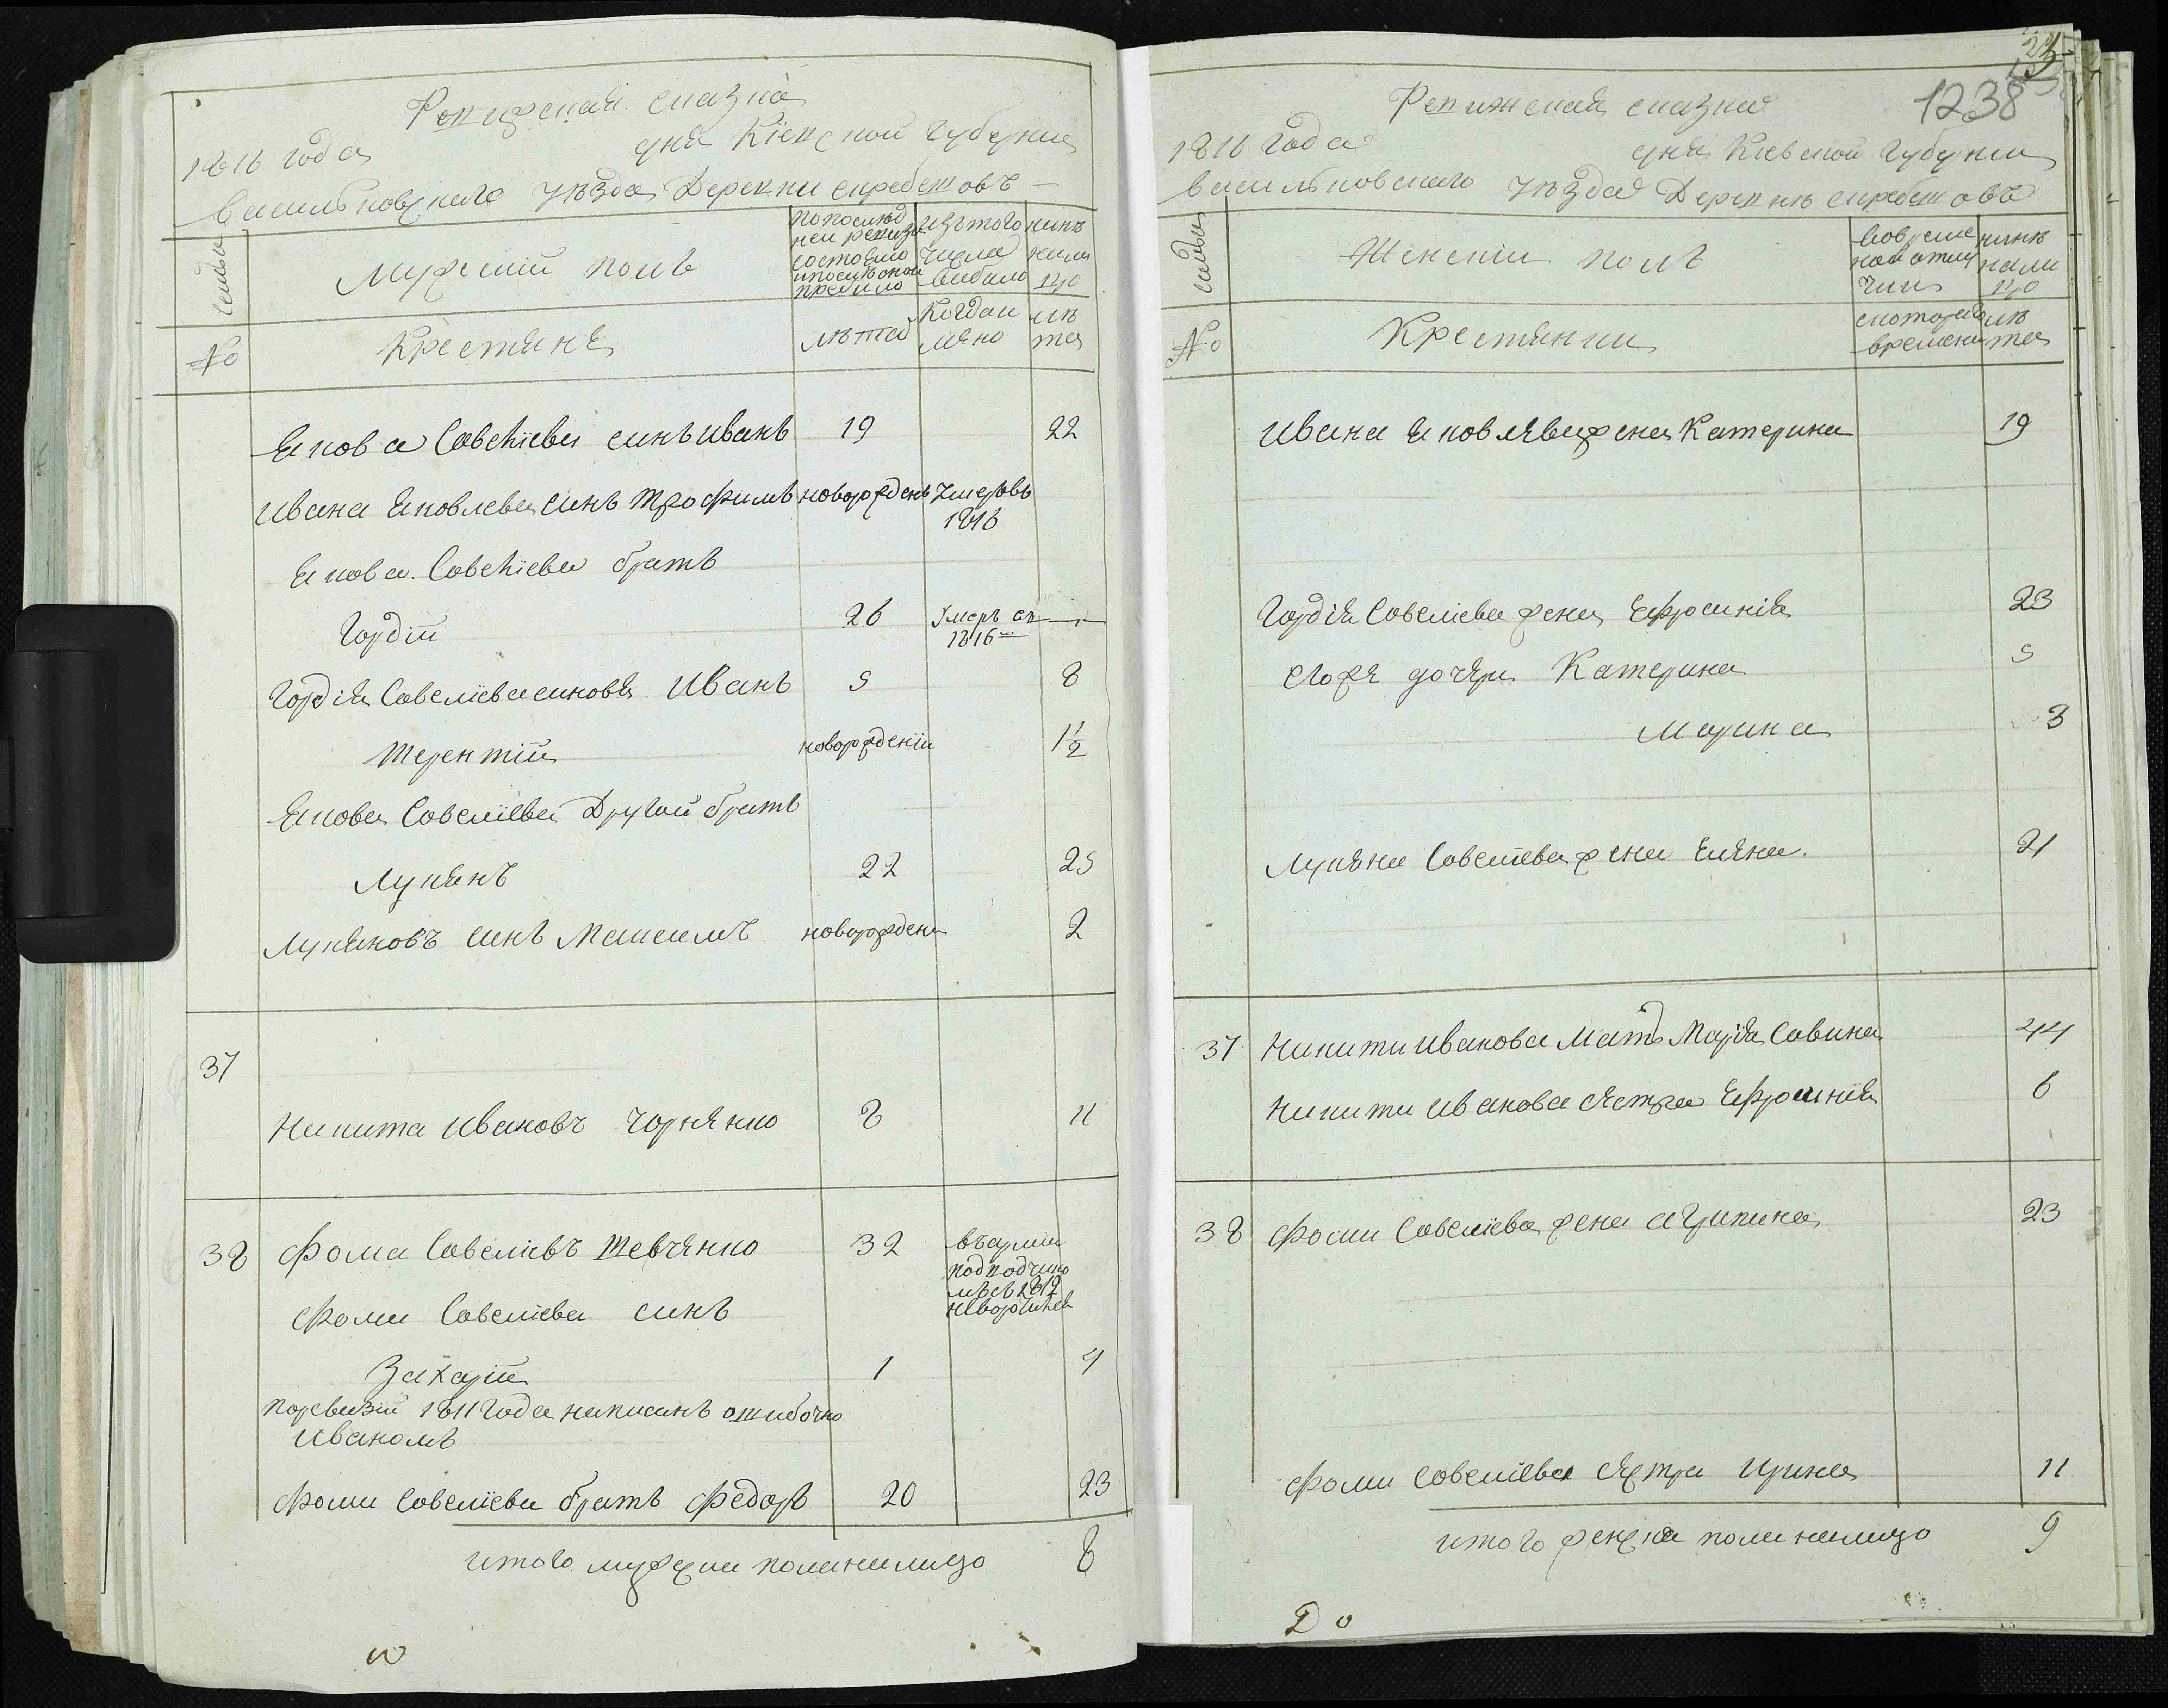 Ревизская сказка
1816 года дня Кіевской губернии
Васильковского уезда Деревни скребетовъ
Семьи
Мужеский полъ
По послед
ней ревизіи
состояло
и после оной
прибило
Изъ того
числа
вибило
нине
нали
цо
№
Крестяне
лета
Когда и
мяно
ле
та
Якова Савеліева синъ Иванъ 19 22
Ивана Яковлева синъ Трофимъ новорожденъ Умеръ въ
1816
Якова Савеліева братъ
Гордій 26 Умеръ въ
1816
Гордія Савелиева синовя Иванъ 5 8
Терентій новорожденіи 1 1/2
Якова Савеліева Другой братъ
Лукянъ 22 25
Лукяновъ синъ Максимъ новорожденъ 2
37
Никита Ивановъ Чорненко 8 11
38 Фома Савеліевъ Шевченко 32 въ армии
Фоми Савелиева синъ
Захарій 1 4
По ревизіи 1811 года написанъ ошибочно
Иваномъ
Фоми Савелиева братъ Федоръ 20 23
итого мужска пола налицо 8
23
1238
Ревижская сказка
1816 года дня Киевской губернии
Васильковского уезда Деревне скребетовъ
Семьи
Женскіи полъ
Во време
ной отлу
чки
нине
нали
цо
№
Крестянки
с котораго
времени
ле
та
Ивана Яковлева жена Катерина 19
Гордія Савелиева жена Ефросинія 23
его же дочери Катерина 5
Марина 3
Лукяна Савелиева жена Еляна 21
37 Никити Иванова Мать Марія Савина 44
Никити Иванова Сестра Ефросинія 6
38 Фоми Савелиева жена Агрипина 23
Фоми Савелиева Сестра Ирина 11
итого женска пола налицо 9
До